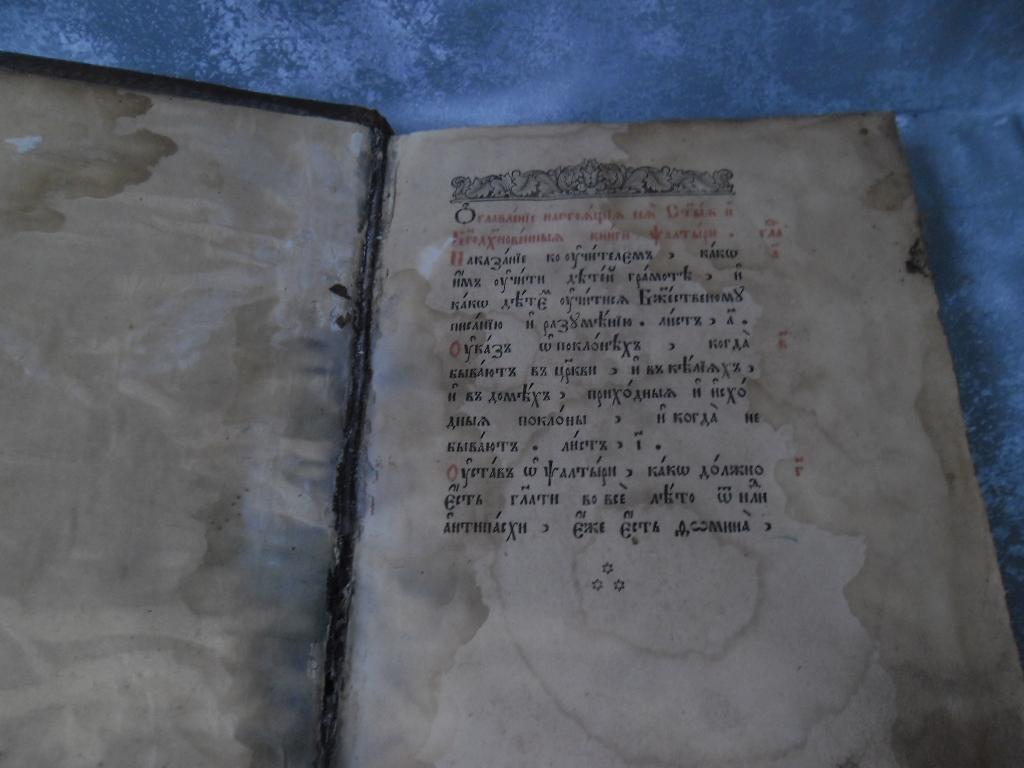 Ѻ҆главле́нїе настоѧ́щїѧ сеѧ̀ Ст҃ы́ѧ и҆
Бг҃одꙋхнове́нныѧ кни́ги ѱалты́ри . гла
Наказа́нїе ко ᲂу҆чи́телемъ , ка́кѡ а҃
и҆́мъ ᲂу҆чи́ти дѣте́й гра́мотѣ , и҆
ка́кѡ дѣ́темъ ᲂу҆чи́тисѧ Бж҃е́ственомꙋ
писа́нїю и҆ разꙋмѣ́нїю . ли́стъ , а҃ .
Оу҆ка́зъ ѡ҆ покло́нѣхъ , когда̀ в҃
быва́ютъ въ цр҃кви , и҆ въ кѣ́лїѧхъ ,
и҆ въ домѣ́хъ , прихо́дныѧ и҆ и҆схо́
дныѧ покло́ны , и҆ когда̀ не
быва́ютъ . ли́стъ , і҃ .
Оу҆ста́въ ѡ҆ ѱалты́ри , ка́кѡ до́лжно г҃
є҆́сть гл҃ати во всѐ лѣ́то ѿ нд҃ли
а҆нтипа́схи , є҆́же є҆́сть ѳѡмина̀ ,